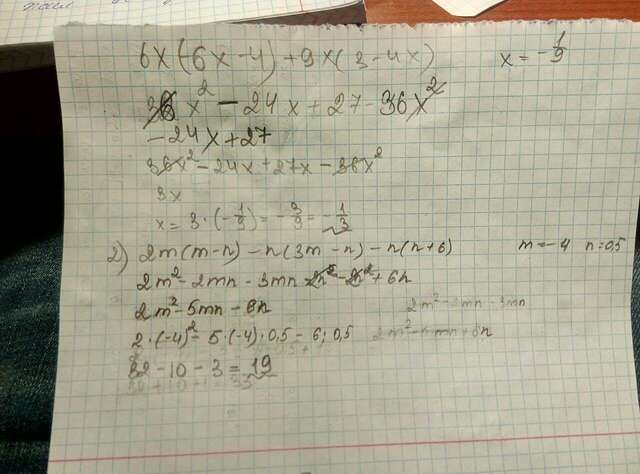 6x(6x-4)+9x(3-4x) x=-1/9
36x²-24x+27-36x²
-24x+27
36x²-24x+27x-36x²
3x
x=3·(-1/9)=-3/9=-1/3
2) 2m(m-n)-n(3m-n)-n(n+6) m=-4 n=0,5
2m²-2mn-3mn+n²-n²+6n
2m²-5mn-6n
2·(-4)²-5·(-4)·0,5-6·0,5
32-10-3=19